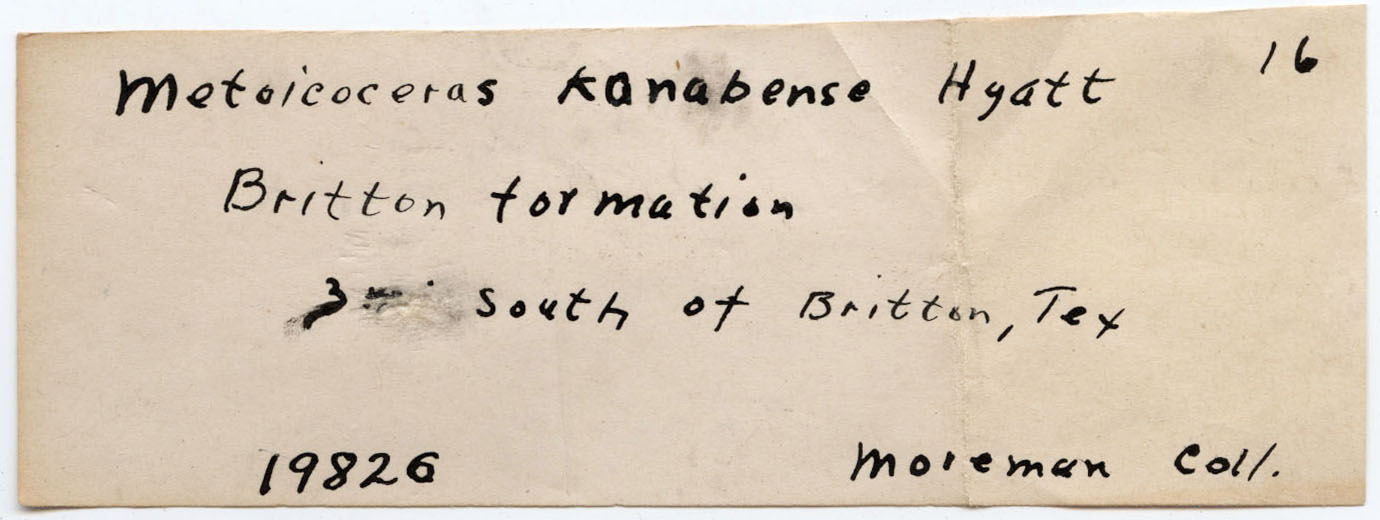 16
Metoicoceras kanabense Hyatt
Britton formation
3 South of Britton, Tex
19826 Moreman Coll.